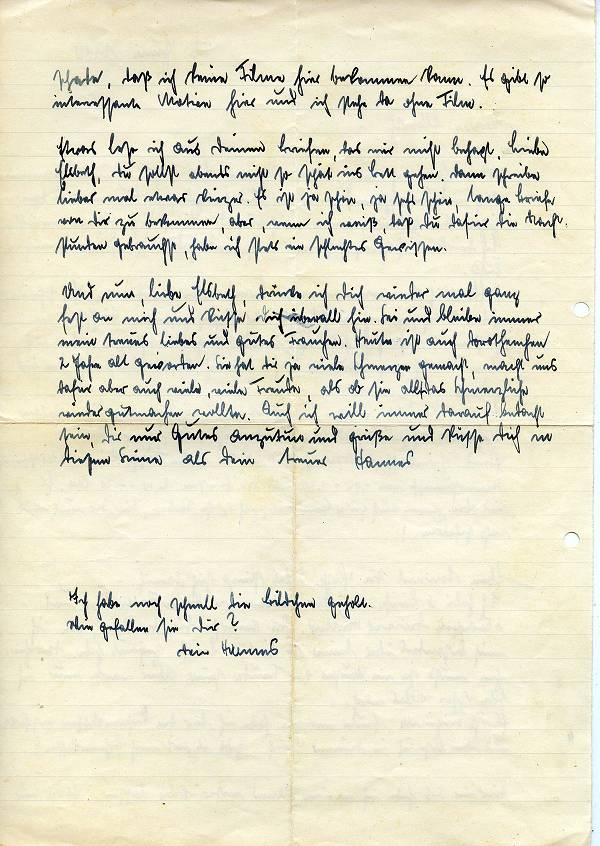 schade, daß ich keine Filme hier bekommen kann. Es gibt so
interessante Motive hier und ich stehe da ohne Film.
Etwas lese ich aus deinen Briefen, das mir nicht behagt, liebe
Elsbeth, du sollst abends nicht so spät ins Bett gehen. Dann schreibe
lieber mal etwas kürzer. Es ist ja schön, ja sehr schön, lange Briefe
von dir zu bekommen, aber, wenn ich weiß, daß du dafür die Nacht-
stunden gebrauchst, habe ich stets ein schlechtes Gewissen.
Und nun, liebe Elsbeth, drücke ich dich wieder mal ganz
fest an mich und küsse dich überall hin. Sei und bleibe immer
mein treues liebes und gutes Frauchen. Heute ist auch Dorotheechen
2 Jahre alt geworden. Sie hat dir ja viele Schmerzen gemacht, macht uns
dafür aber auch viele, viele Freude, als ob sie all das Schmerzliche
wiedergutmachen wollte. Auch ich will immer darauf bedacht
sein, dir nur Gutes anzutun und grüße und küsse dich in
diesem Sinne als dein treuer Hannes
Ich habe noch schnell die Bildchen geholt.
Wie gefallen sie dir?
Dein Hannes